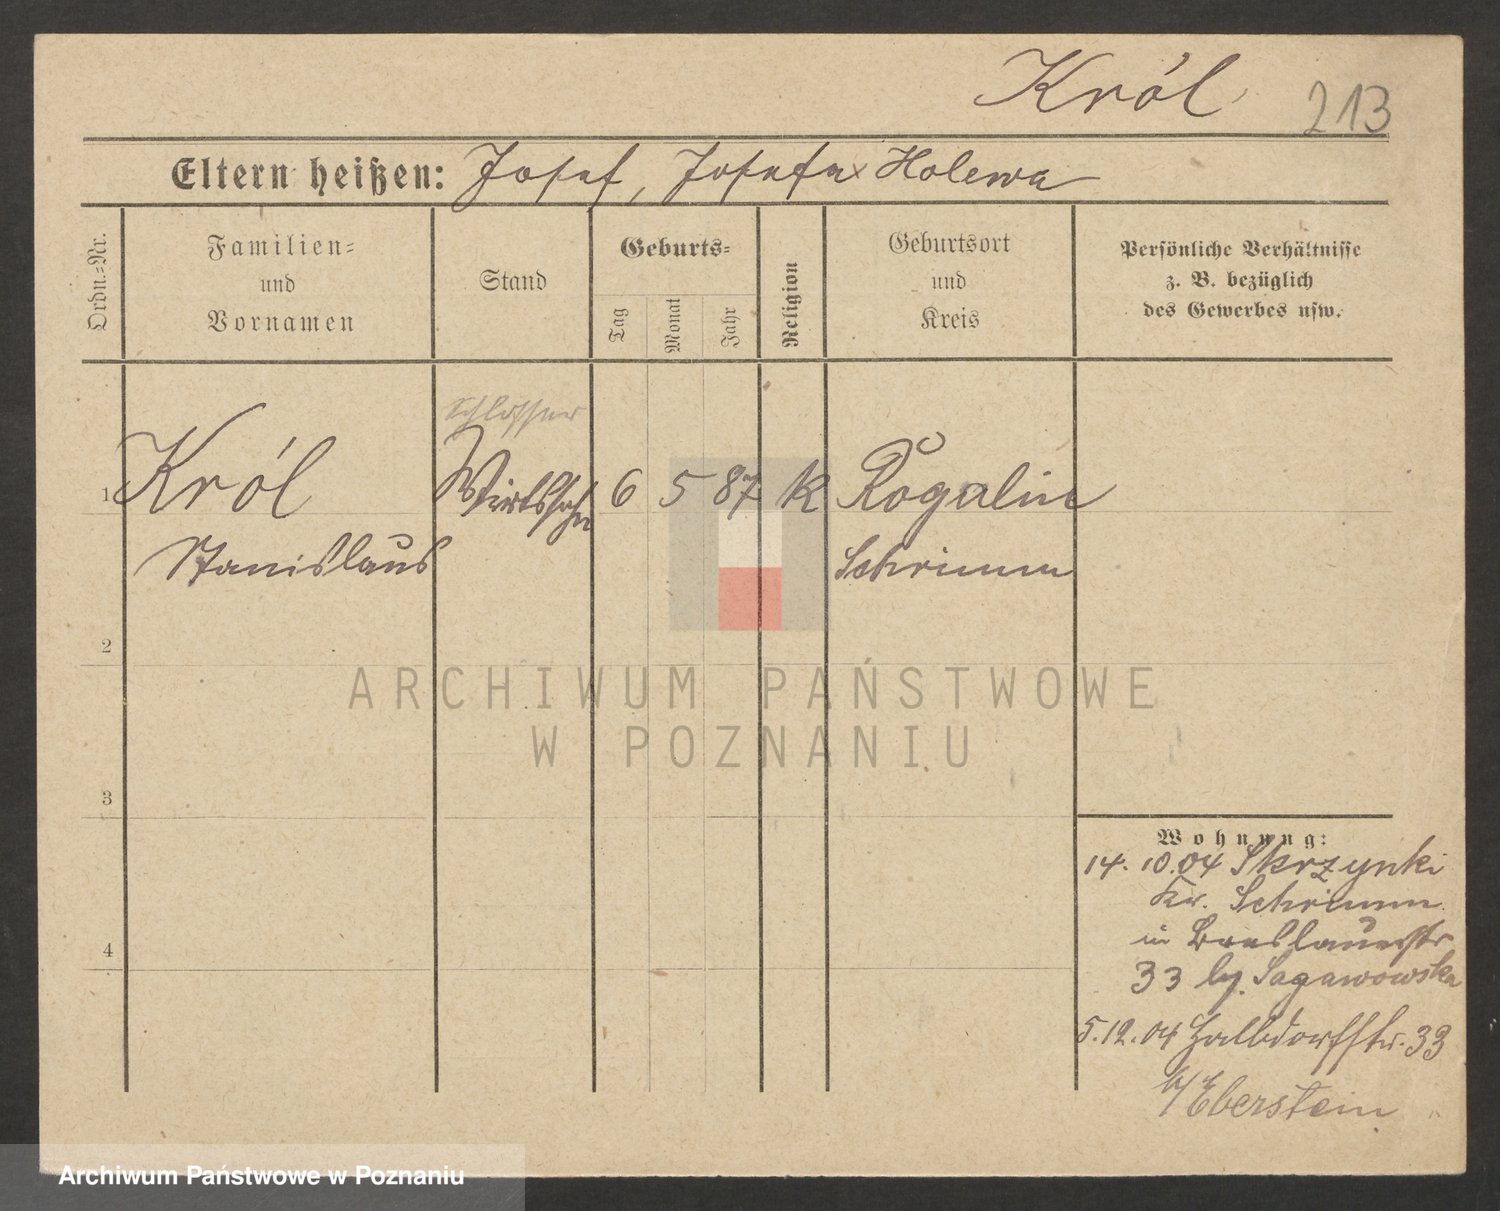 Król 213
Eltern heißen: Josef, Josefa Holewa
Ordn.-Nr.
Familien-
und
Vornamen
Stand
Geburts-
Tag
Monat
Jahr
Religion
Geburtsort
und
Kreis
Persönliche Verhältnisse
z. B. bezüglich
des Gewerbes usw.
Schlosser
1 Król Wirtssohn 6 5 87 K Rogalin
Stanislaus Schrimm
2
ARCHIWUM PAŃSTWOWE
W POZNANIU
3
Wohnung:
14.10.04 Skrzynki
Kr. Schrimm
in Breslauerstr
33 by.
4
5.12.04 Halbdorfstr. 33
b/ Eberstein
Archiwum Państwowe w Poznaniu